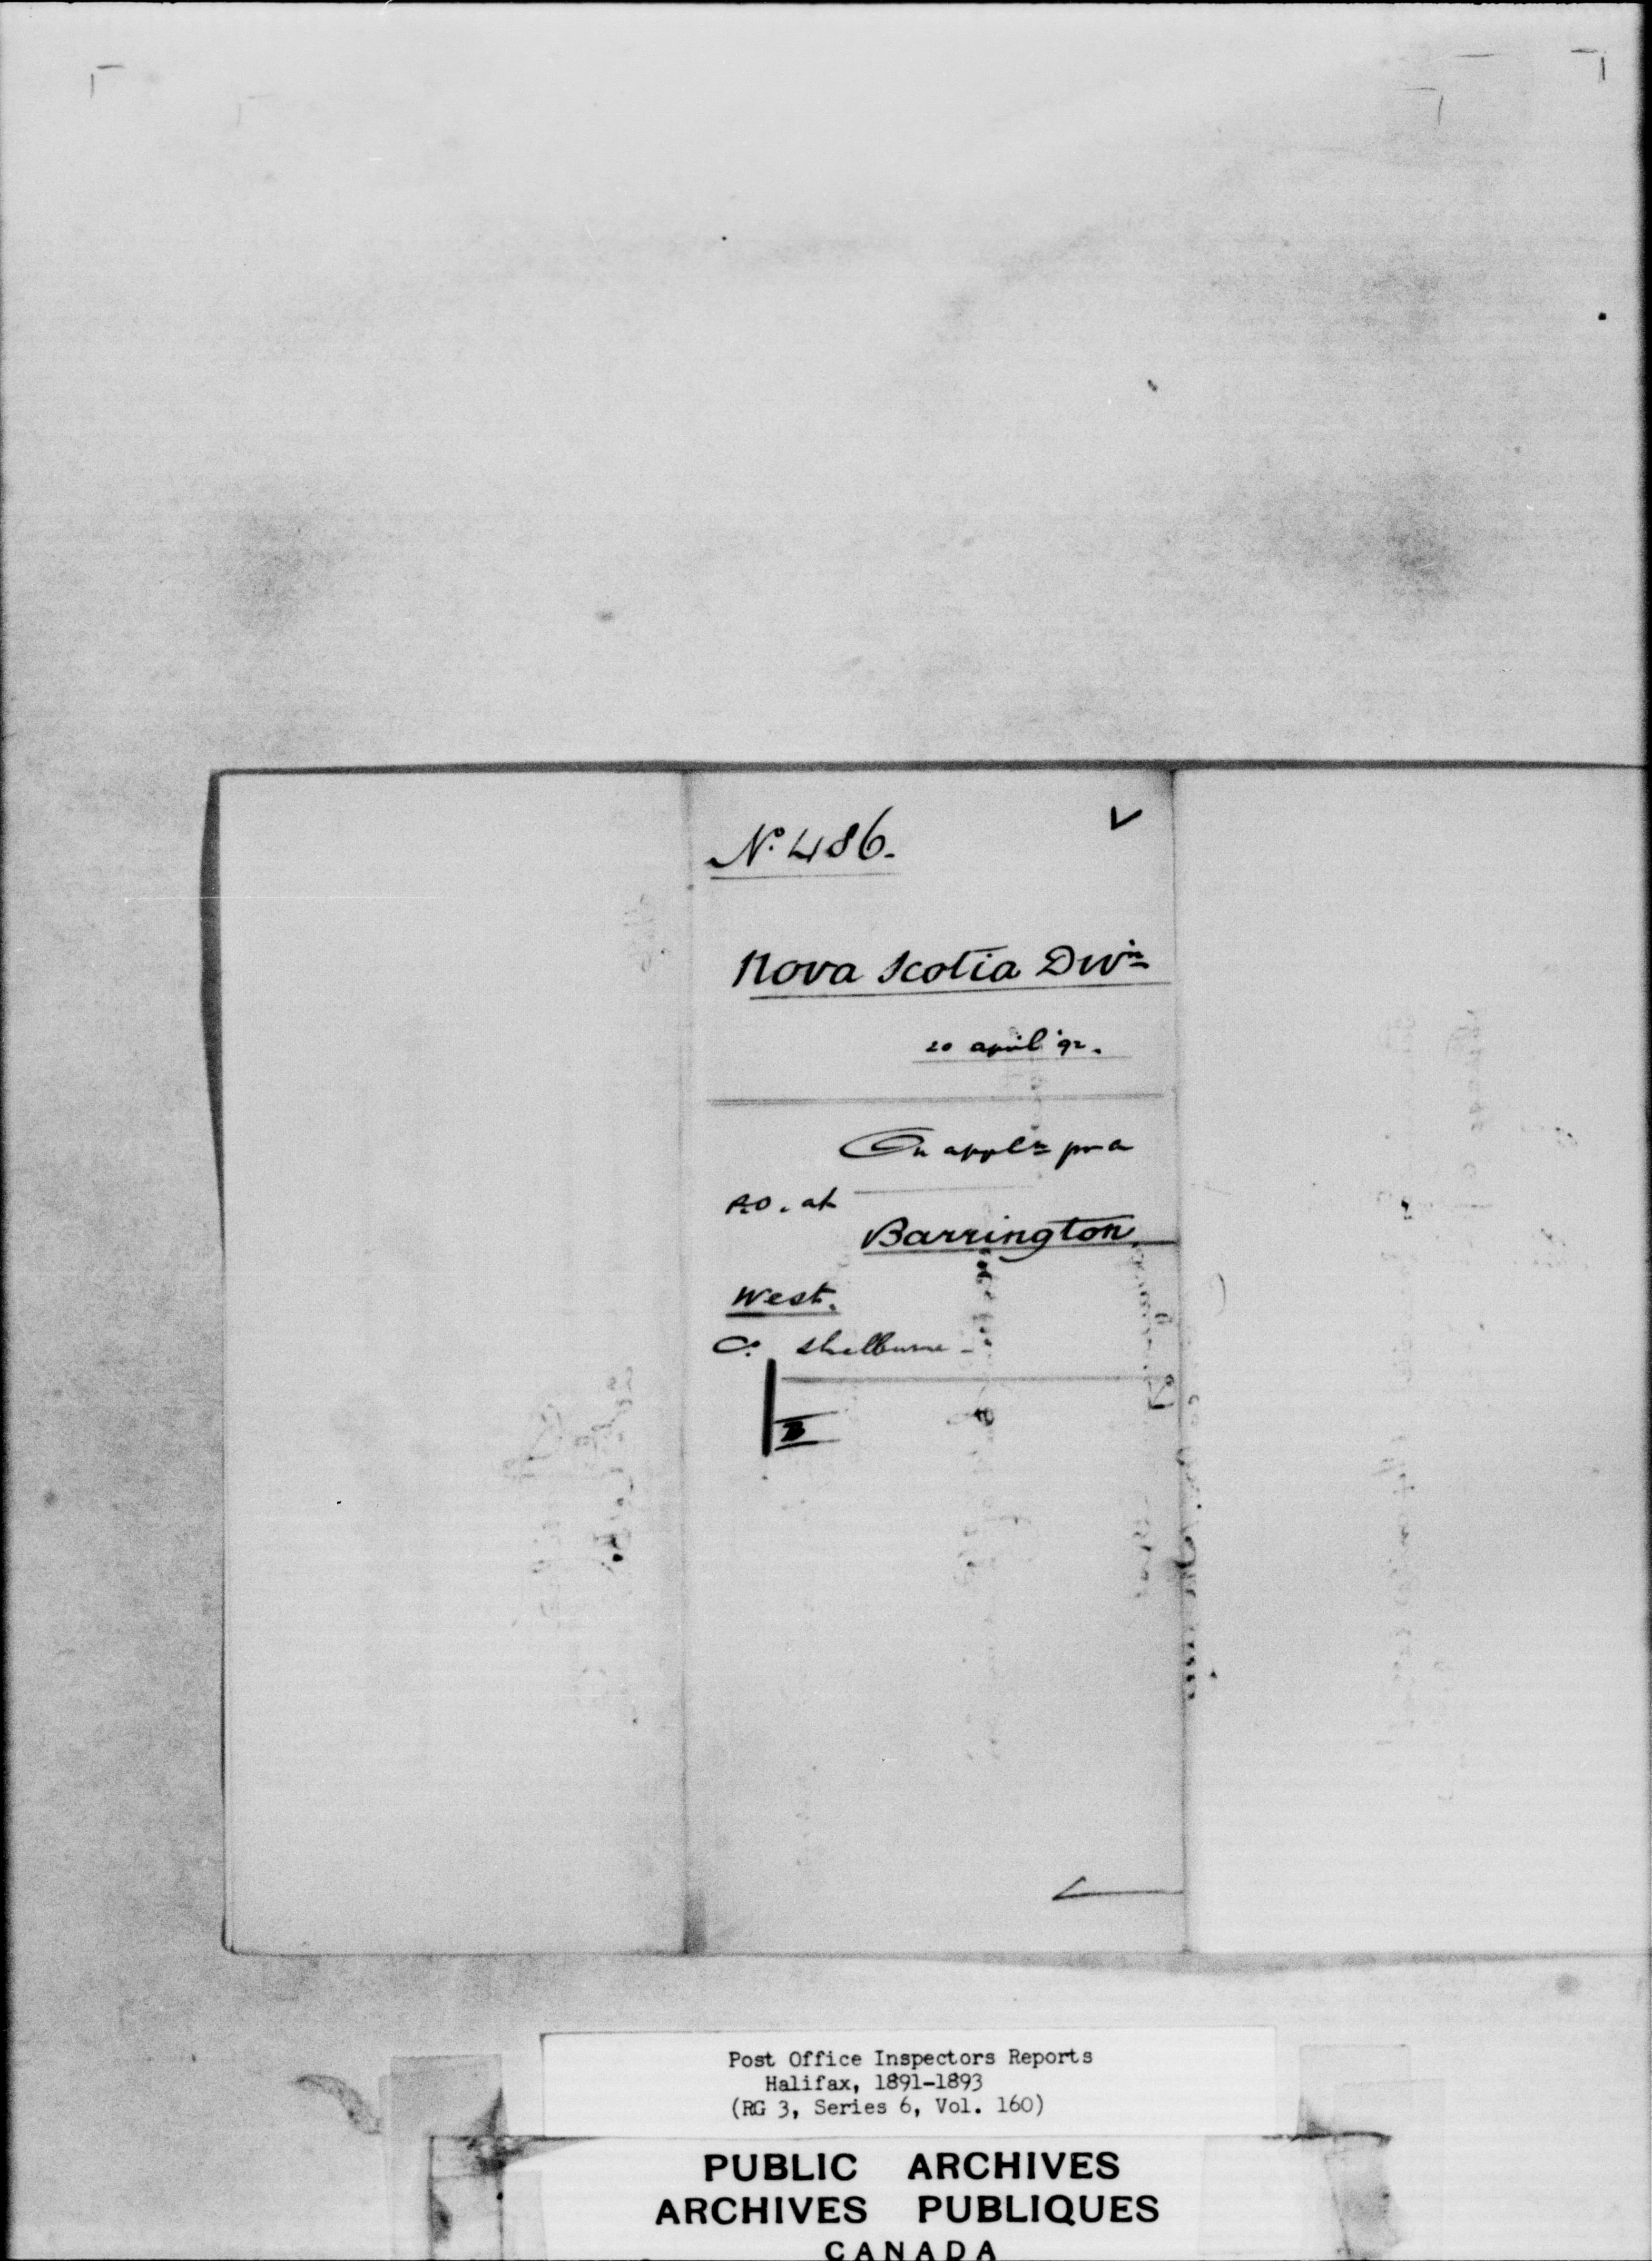 No. 486.
Nova Scotia Divn
20 april '92.
On appln for a
P.O. at
Barrington
West.
C. Shelburne -
Post Office Inspectors Reports
Halifax, 1891-1893
(RG 3, Series 6, Vol. 160)
PUBLIC ARCHIVES
ARCHIVES PUBLIQUES
CANADA